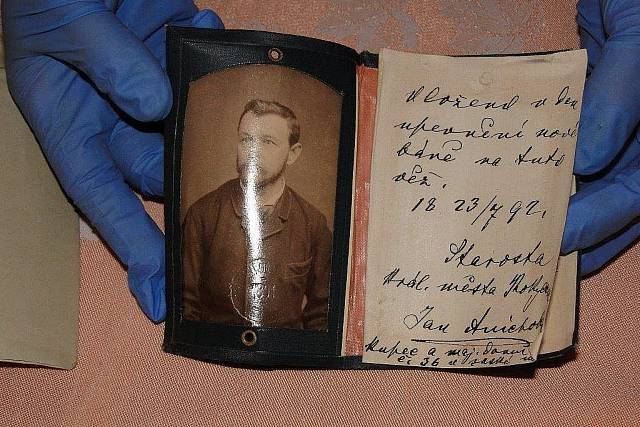 Vloženo v den
upevnění nové
báně na tuto
věž.
18 23/7 92.
Starosta
král. města
Jan
Kupec a maj. domu
č. 36